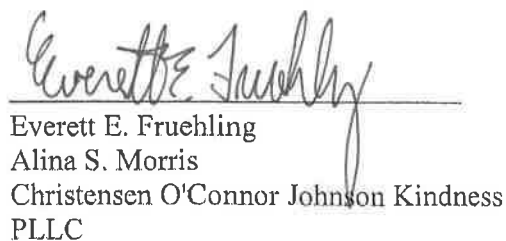 Everett E. Fruehling
Everett E. Fruehling
Alina S. Morris
Christensen O'Connor Johnson Kindness
PLLC